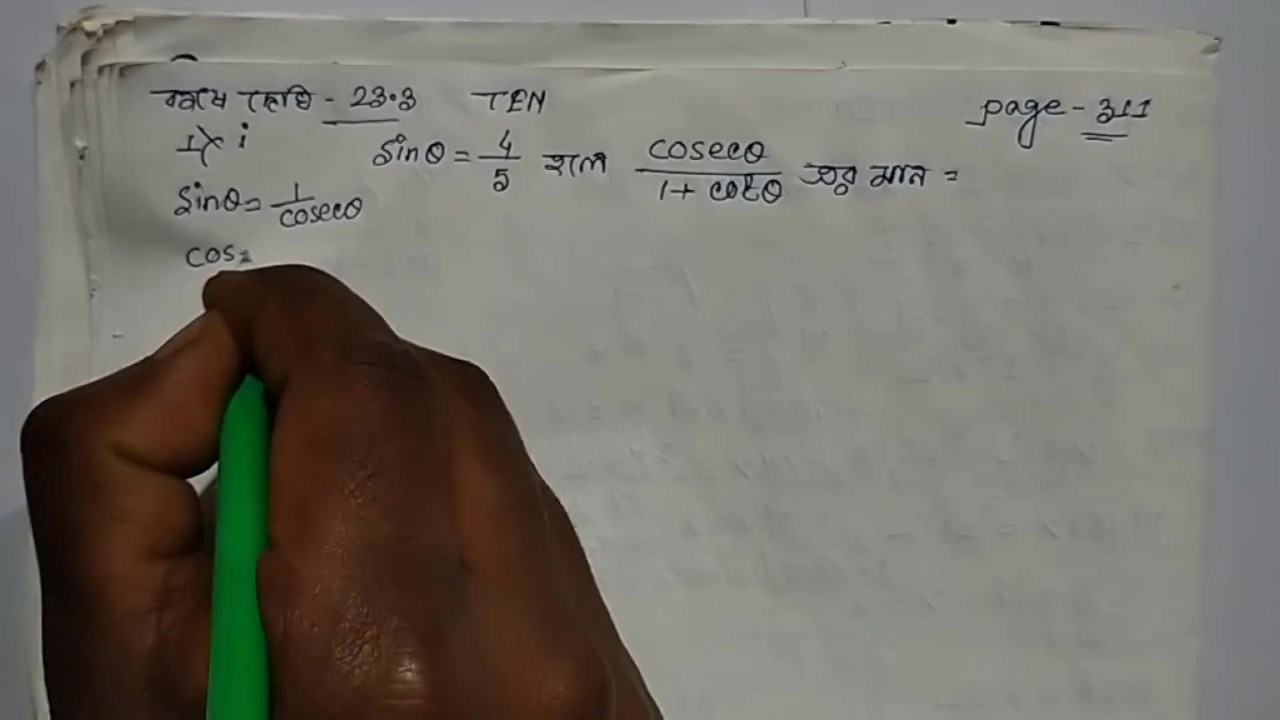 কষে দেখি - 23.3 TEN page - 311
1) i sinθ = 4/5 হলে cosecθ/1 + cotθ এর মান =
sinθ = 1/cosecθ
cos